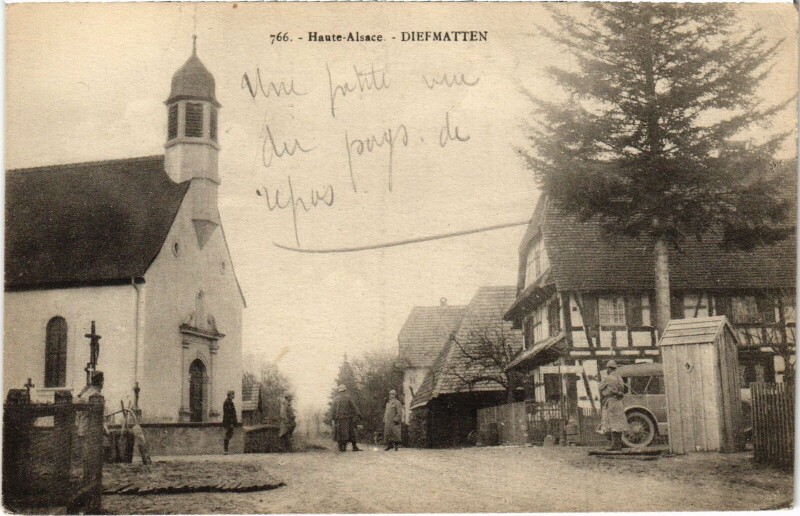 766. - Haute-Alsace. - DIEFMATTEN
Une petite vue
du pays de
repos